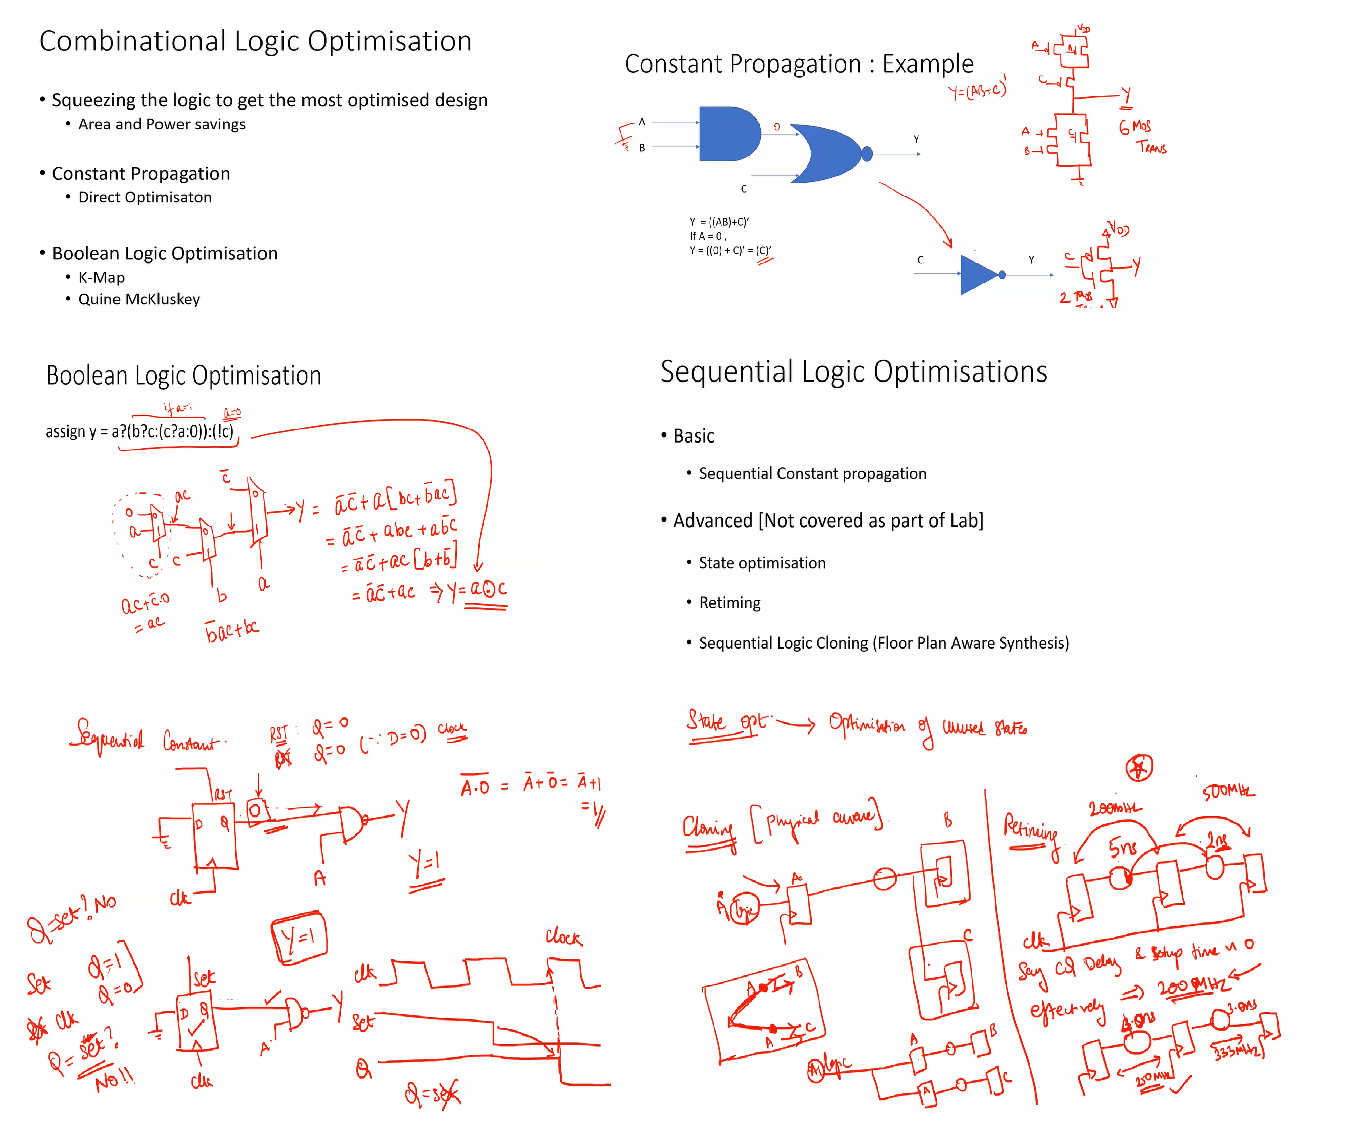 Combinational Logic Optimisation
• Squeezing the logic to get the most optimised design
• Area and Power savings
• Constant Propagation
• Direct Optimisaton
• Boolean Logic Optimisation
• K-Map
• Quine McKluskey
Constant Propagation : Example
Y=(AB+C)'
A
B
0
C
Y
Y = ((AB)+C)'
If A = 0 ,
Y = ((0) + C)' = (C)'
C
Y
VDD
A
B
C
Y
A
C
B
6 MOS
TRANS
VDD
C
Y
2
Boolean Logic Optimisation
if a=1
a=0
assign y = a?(b?c:(c?a:0)):(!c)
c̅
0
a
c
ac
c
b
a
Y = a̅c̅+a[bc+b̅ac]
= a̅c̅+abc+ab̅c
= a̅c̅+ac[b+b̅]
= a̅c̅+ac ⇒ Y=a⊙c
ac+c̅.0
= ac
b̅ac+bc
Sequential Logic Optimisations
• Basic
• Sequential Constant propagation
• Advanced [Not covered as part of Lab]
• State optimisation
• Retiming
• Sequential Logic Cloning (Floor Plan Aware Synthesis)
Sequential Constant.
RST: Q=0
Q=0 (∵ D=0) clock
RST
D Q
0
clk
A
Y
Y=1
A.0 = A̅+0̅= A̅+1
=1
Q=set? No
Set Q=1
clk Q=0
Q=set?
No!!
Set
D Q
clk
A
Y
Y=1
clock
clk
Set
Q
Q=set
State opt. → Optimisation of unused states
Cloning [Physical aware].
A
logic
A
B
C
A B
A C
A logic
A
B
A
C
Retiming
200MHz
500MHz
5ns
2ns
clk
Say CQ Delay & Setup time is 0
effectively ⇒ 200MHz
4.0ns
3.0ns
250MHz
333MHz